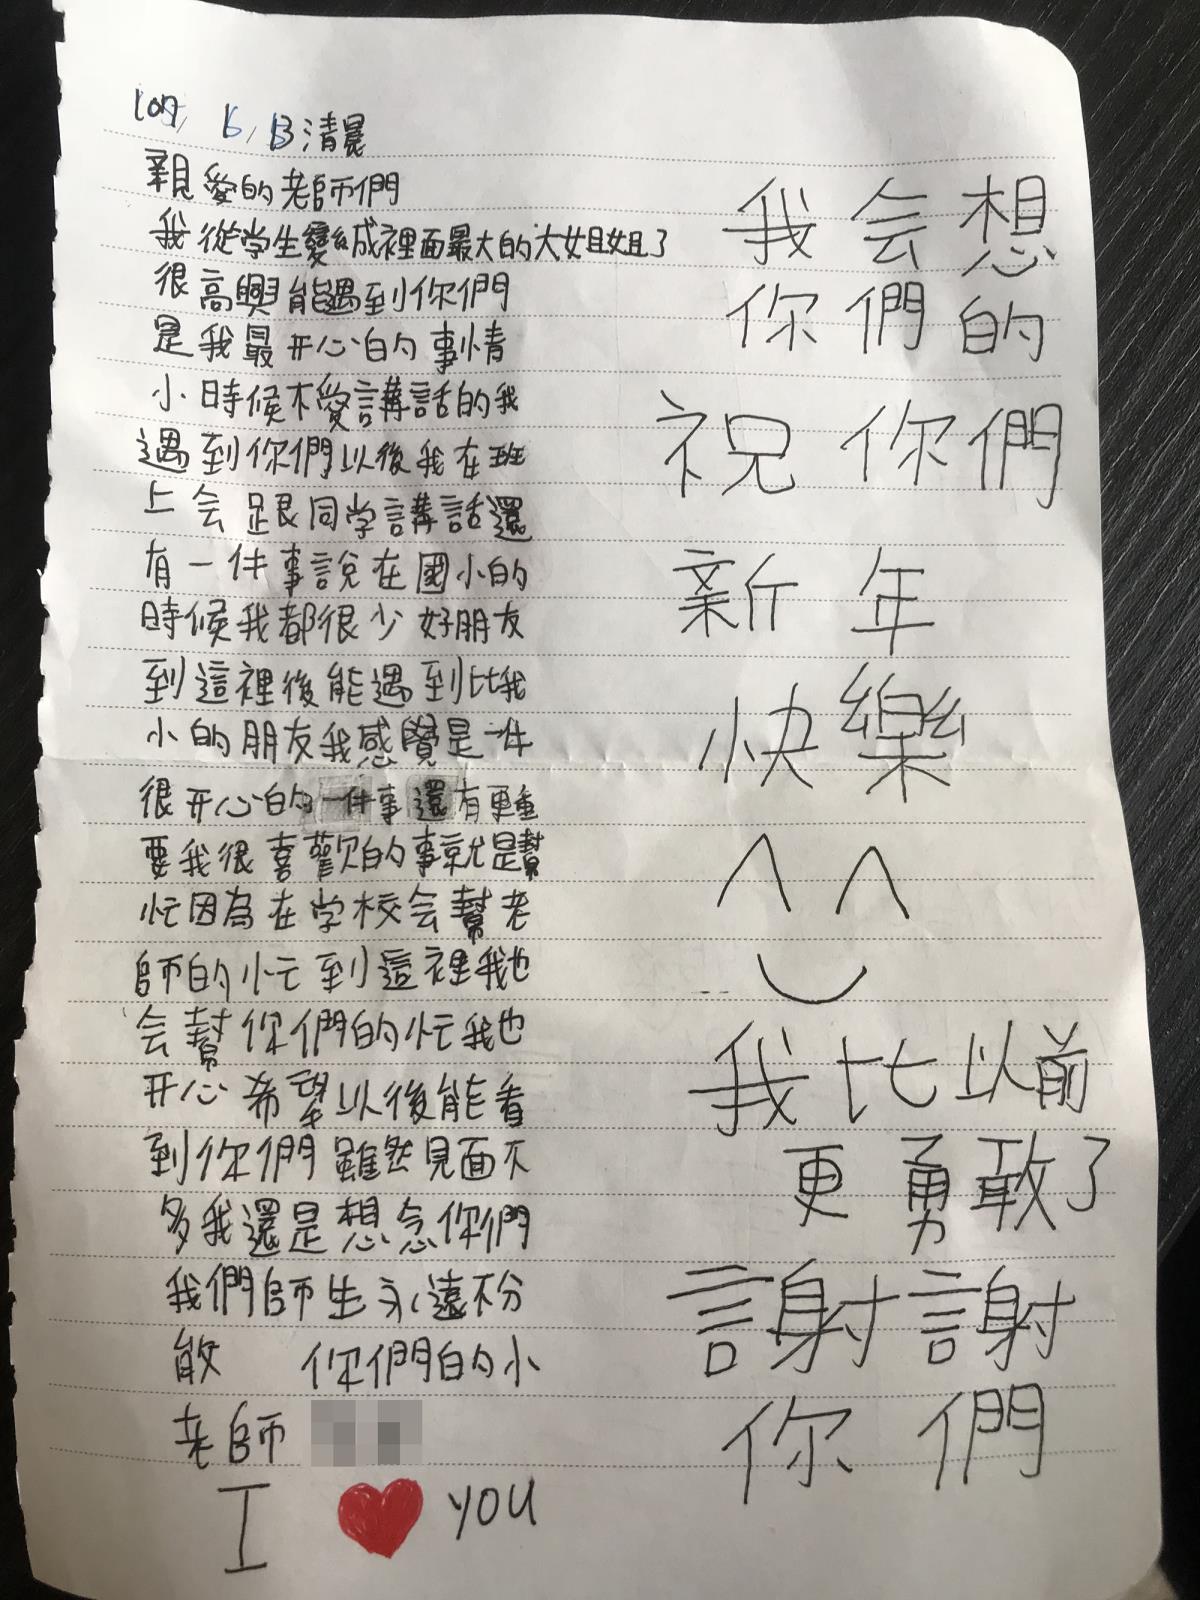 107, 6, 13 清晨
親愛的老師們
我從学生變成裡面最大的大姐姐了
很高興能遇到你們
是我最开心的事情
小時候不愛講話的我
遇到你們以後我在班
上会跟同学講話還
有一件事說在國小的
時候我都很少好朋友
到這裡後能遇到比我
小的朋友我感覺是一件
很开心的一件事還有更重
要我很喜歡的事就是幫
忙因為在学校会幫老
師的忙到這裡我也
会幫你們的忙我也
开心希望以後能看
到你們雖然見面不
多我還是想念你們
我們師生永遠不分
散 你們的小
老師
I ❤ YOU
我会想
你們的
祝你們
新年
快樂
我比以前
更勇敢了
謝謝
你們